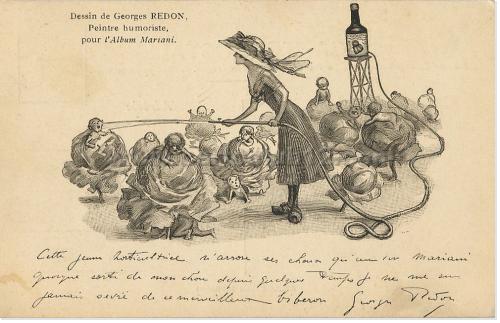 Dessin de Georges REDON,
Peintre humoriste,
pour l'Album Mariani.
Cette jeune horticultrice n'arrose ses choux qu'au vin Mariani
quoique sorti de mon chou depuis quelques temps je ne me suis
jamais sevré de ce merveilleux biberon Georges Redon